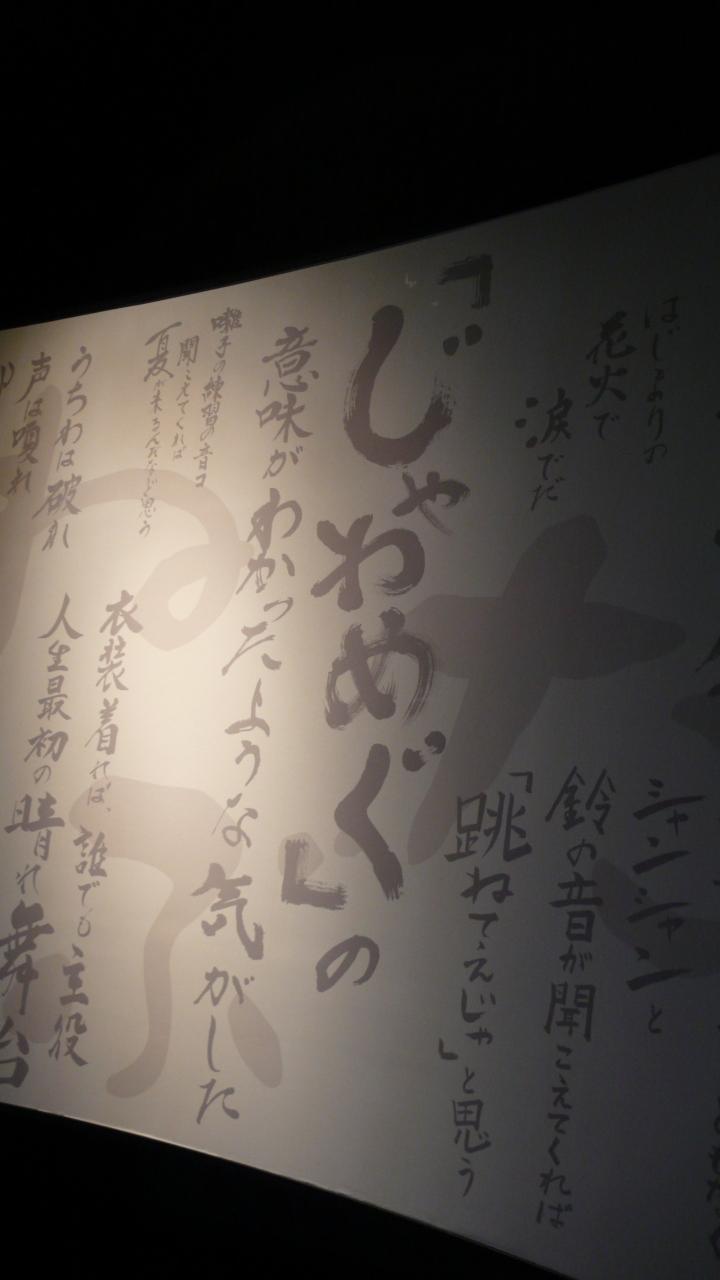 はじまりの
花火で
涙でだ
シャンシャンと
鈴の音が聞こえてくれば
「跳ねてえじゃ」と思う
「じゃわめぐ」の
意味がわかったような気がした
囃子の練習の音コ
聞こえてくれば
夏が来るんだなど思う
衣装着れば、誰でも主役
うちわは破れ
声は嗄れ
人生最初の晴れ
舞台